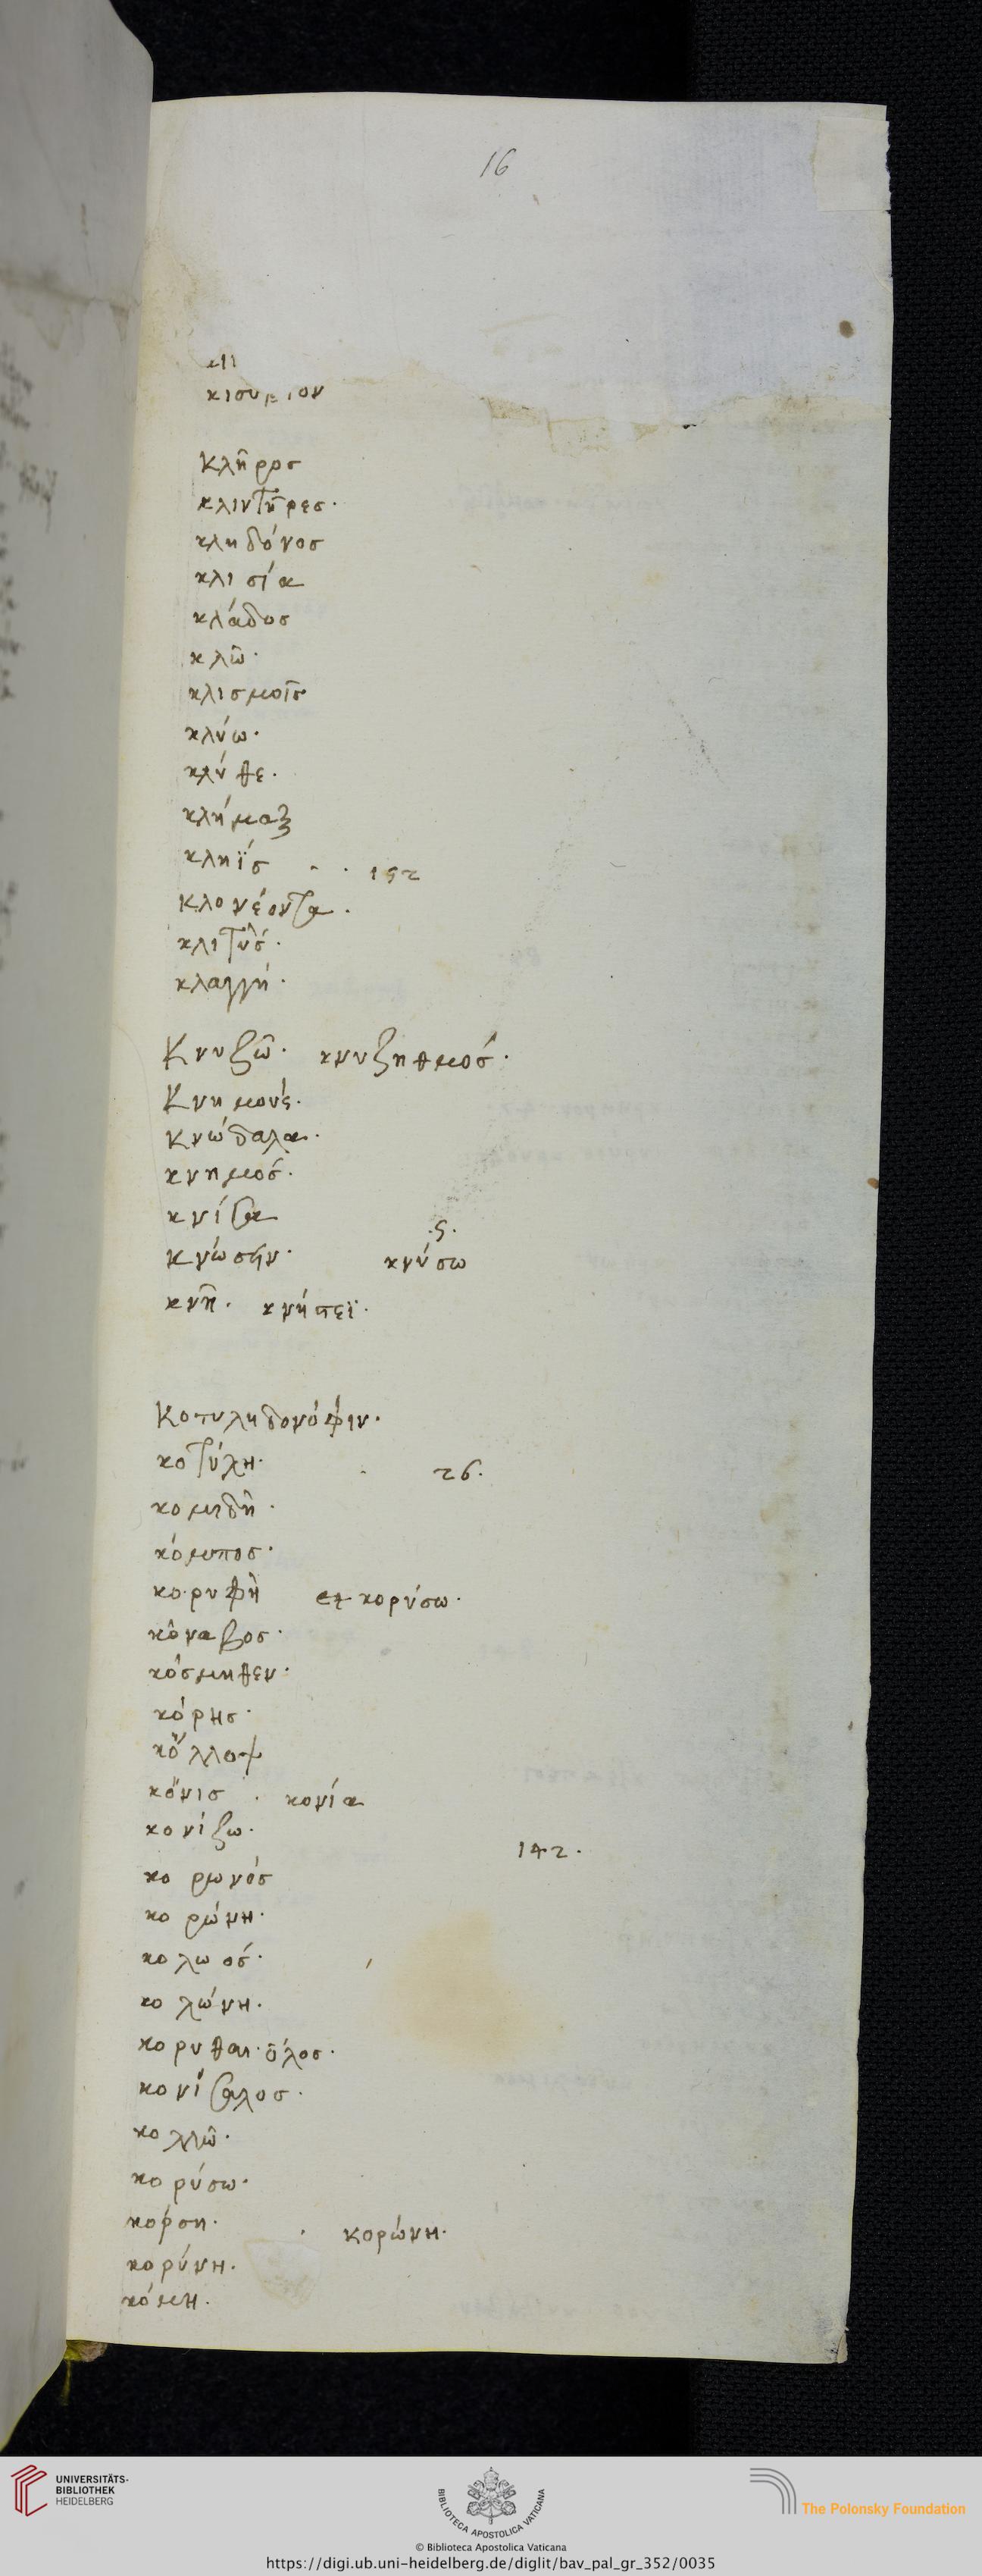 16
κισυβιον
κλῆροσ
κλιντῆρεσ·
κληδόνοσ
κλισία
κλάδοσ
κλῶ·
κλισμοῖσ
κλύω·
κλύθε·
κλήμαξ
κληΐσ · · 152
κλονέοντα·
κλιτύσ·
κλαγγή·
Κνυζῶ· κνυζηθμόσ·
Κνημούς·
κνώδαλα·
κνημόσ·
κνίσα
·ς·
κνώσην· κνύσω
κνῆ· κνήπεϊ·
Κοτυληδονόφιν·
κοτύλη· · 26·
κομιδὴ·
κόμποσ·
κορυφὴ et κορύσω·
κόναβοσ·
κόσμηθεν·
κόρησ·
κόλλοψ
κόνισ · κονία
κονίζω·
142·
κορωνόσ
κορώνη·
κολωόσ·
κολώνη·
κορυθαι·όλοσ·
κονίσαλοσ·
κολλῶ·
κορύσω·
κόρση· · κορώνη·
κορύνη·
κόμη·
UNIVERSITÄTS-
BIBLIOTHEK
HEIDELBERG
BIBLIOTECA APOSTOLICA VATICANA
The Polonsky Foundation
© Biblioteca Apostolica Vaticana
https://digi.ub.uni-heidelberg.de/diglit/bav_pal_gr_352/0035